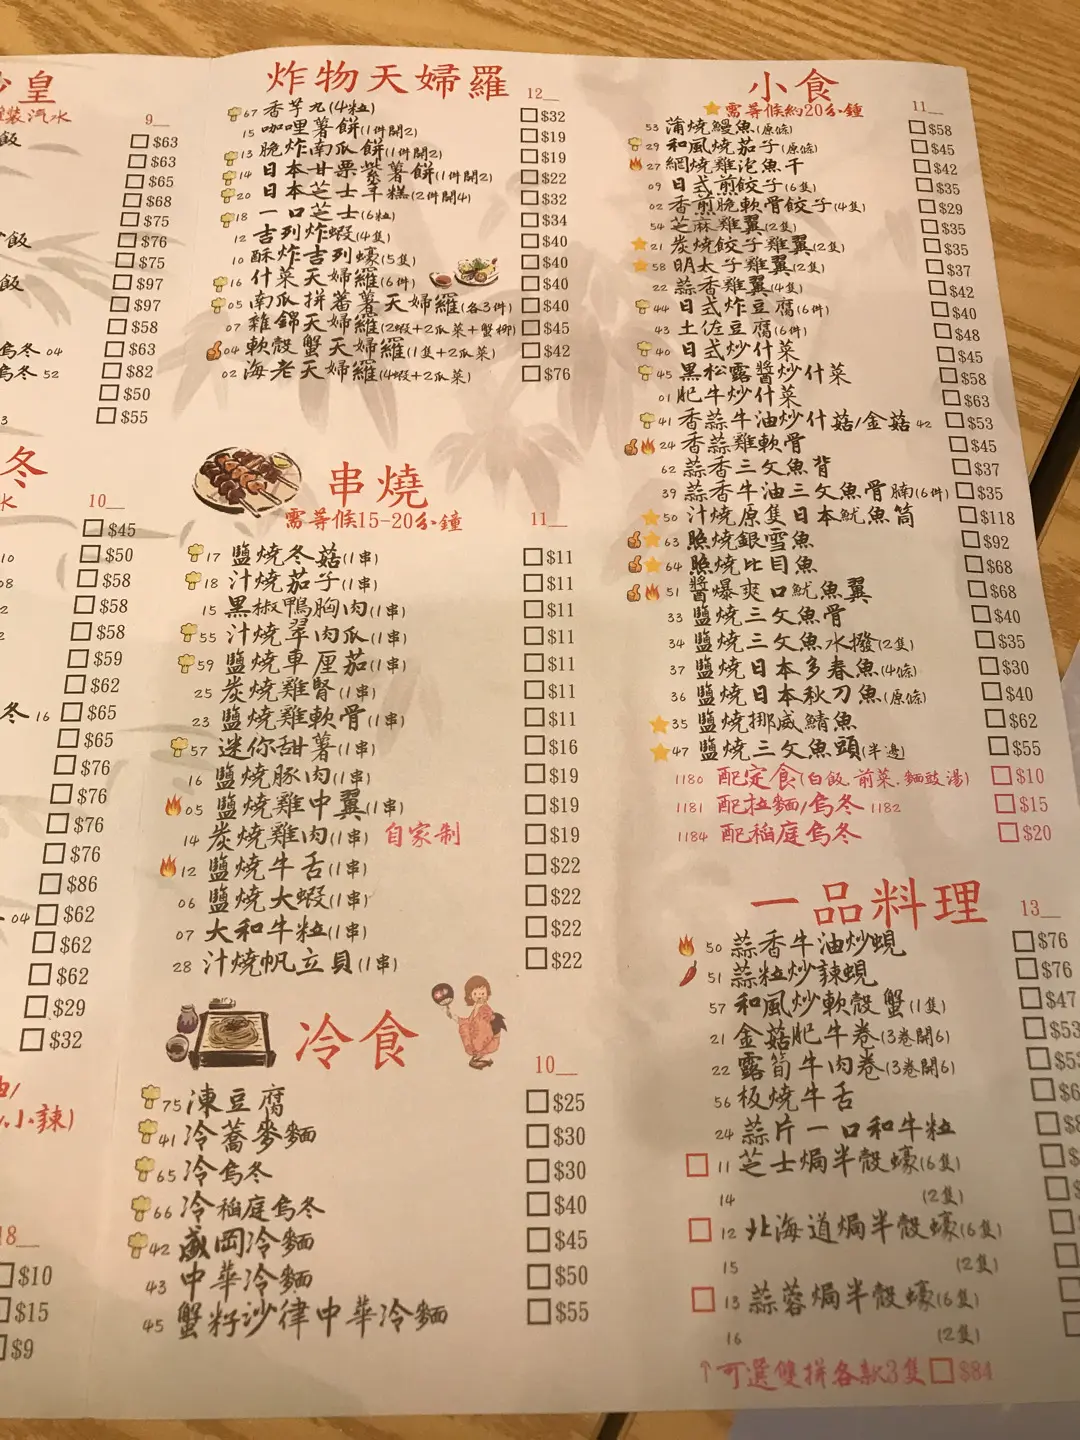 炒皇
裝汽水 9__
飯 $63
$63
$65
$68
$75
飯 $76
$75
飯 $97
$97
$58
烏冬 04 $63
烏冬 52 $82
$50
3 $55
冬
水 10__
$45
10 $50
08 $58
2 $58
2 $58
$59
$62
冬 16 $65
$65
$76
$76
$76
$76
$86
04 $62
$62
$62
$29
$32
小辣)
18__
$10
$15
$9
炸物天婦羅 12__
67 香芋丸(4粒) $32
15 咖哩薯餅(1件開2) $19
13 脆炸南瓜餅(1件開2) $19
14 日本甘栗紫薯餅(1件開2) $22
20 日本芝士年糕(2件開4) $32
18 一口芝士(6粒) $34
12 吉列炸蝦(4隻) $40
10 酥炸吉列蠔(5隻) $40
16 什菜天婦羅(6件) $40
05 南瓜拼蕃薯天婦羅(各3件) $40
07 雜錦天婦羅(2蝦+2瓜菜+蟹柳) $45
04 軟殼蟹天婦羅(1隻+2瓜菜) $42
02 海老天婦羅(4蝦+2瓜菜) $76
串燒
需等候15-20分鐘 11__
17 鹽燒冬菇(1串) $11
18 汁燒茄子(1串) $11
15 黑椒鴨胸肉(1串) $11
55 汁燒翠肉瓜(1串) $11
59 鹽燒車厘茄(1串) $11
25 炭燒雞腎(1串) $11
23 鹽燒雞軟骨(1串) $11
57 迷你甜薯(1串) $16
16 鹽燒豚肉(1串) $19
05 鹽燒雞中翼(1串) $19
14 炭燒雞肉(1串) 自家制 $19
12 鹽燒牛舌(1串) $22
06 鹽燒大蝦(1串) $22
07 大和牛粒(1串) $22
28 汁燒帆立貝(1串) $22
冷食 10__
75 凍豆腐 $25
41 冷蕎麥麵 $30
65 冷烏冬 $30
66 冷稲庭烏冬 $40
42 盛岡冷麵 $45
43 中華冷麵 $50
45 蟹籽沙律中華冷麵 $55
小食
需等候約20分鐘 11__
53 蒲燒鰻魚(原條) $58
29 和風燒茄子(原條) $45
27 網燒雞泡魚干 $42
09 日式煎餃子(6隻) $35
02 香煎脆軟骨餃子(4隻) $29
54 芝麻雞翼(2隻) $35
21 炭燒餃子雞翼(2隻) $35
58 明太子雞翼(2隻) $37
22 蒜香雞翼(4隻) $42
44 日式炸豆腐(6件) $40
43 土佐豆腐(6件) $48
40 日式炒什菜 $45
45 黑松露醬炒什菜 $58
01 肥牛炒什菜 $63
41 香蒜牛油炒什菇/金菇 42 $53
24 香蒜雞軟骨 $45
62 蒜香三文魚背 $37
39 蒜香牛油三文魚骨腩(6件) $35
50 汁燒原隻日本魷魚筒 $118
63 照燒銀雪魚 $92
64 照燒比目魚 $68
51 醬爆爽口魷魚翼 $68
33 鹽燒三文魚骨 $40
34 鹽燒三文魚水撥(2隻) $35
37 鹽燒日本多春魚(4條) $30
36 鹽燒日本秋刀魚(原條) $40
35 鹽燒挪威鯖魚 $62
47 鹽燒三文魚頭(半邊) $55
1180 配定食(白飯.前菜.麵豉湯) $10
1181 配拉麵/烏冬 1182 $15
1184 配稲庭烏冬 $20
一品料理 13__
50 蒜香牛油炒蜆 $76
51 蒜粒炒辣蜆 $76
57 和風炒軟殼蟹(1隻) $47
21 金菇肥牛卷(3卷開6) $53
22 露筍牛肉卷(3卷開6)
56 板燒牛舌
24 蒜片一口和牛粒
11 芝士焗半殼蠔(6隻)
14 (2隻)
12 北海道焗半殼蠔(6隻)
15 (2隻)
13 蒜蓉焗半殼蠔(6隻)
16 (2隻)
↑可選雙拼各款3隻 $84